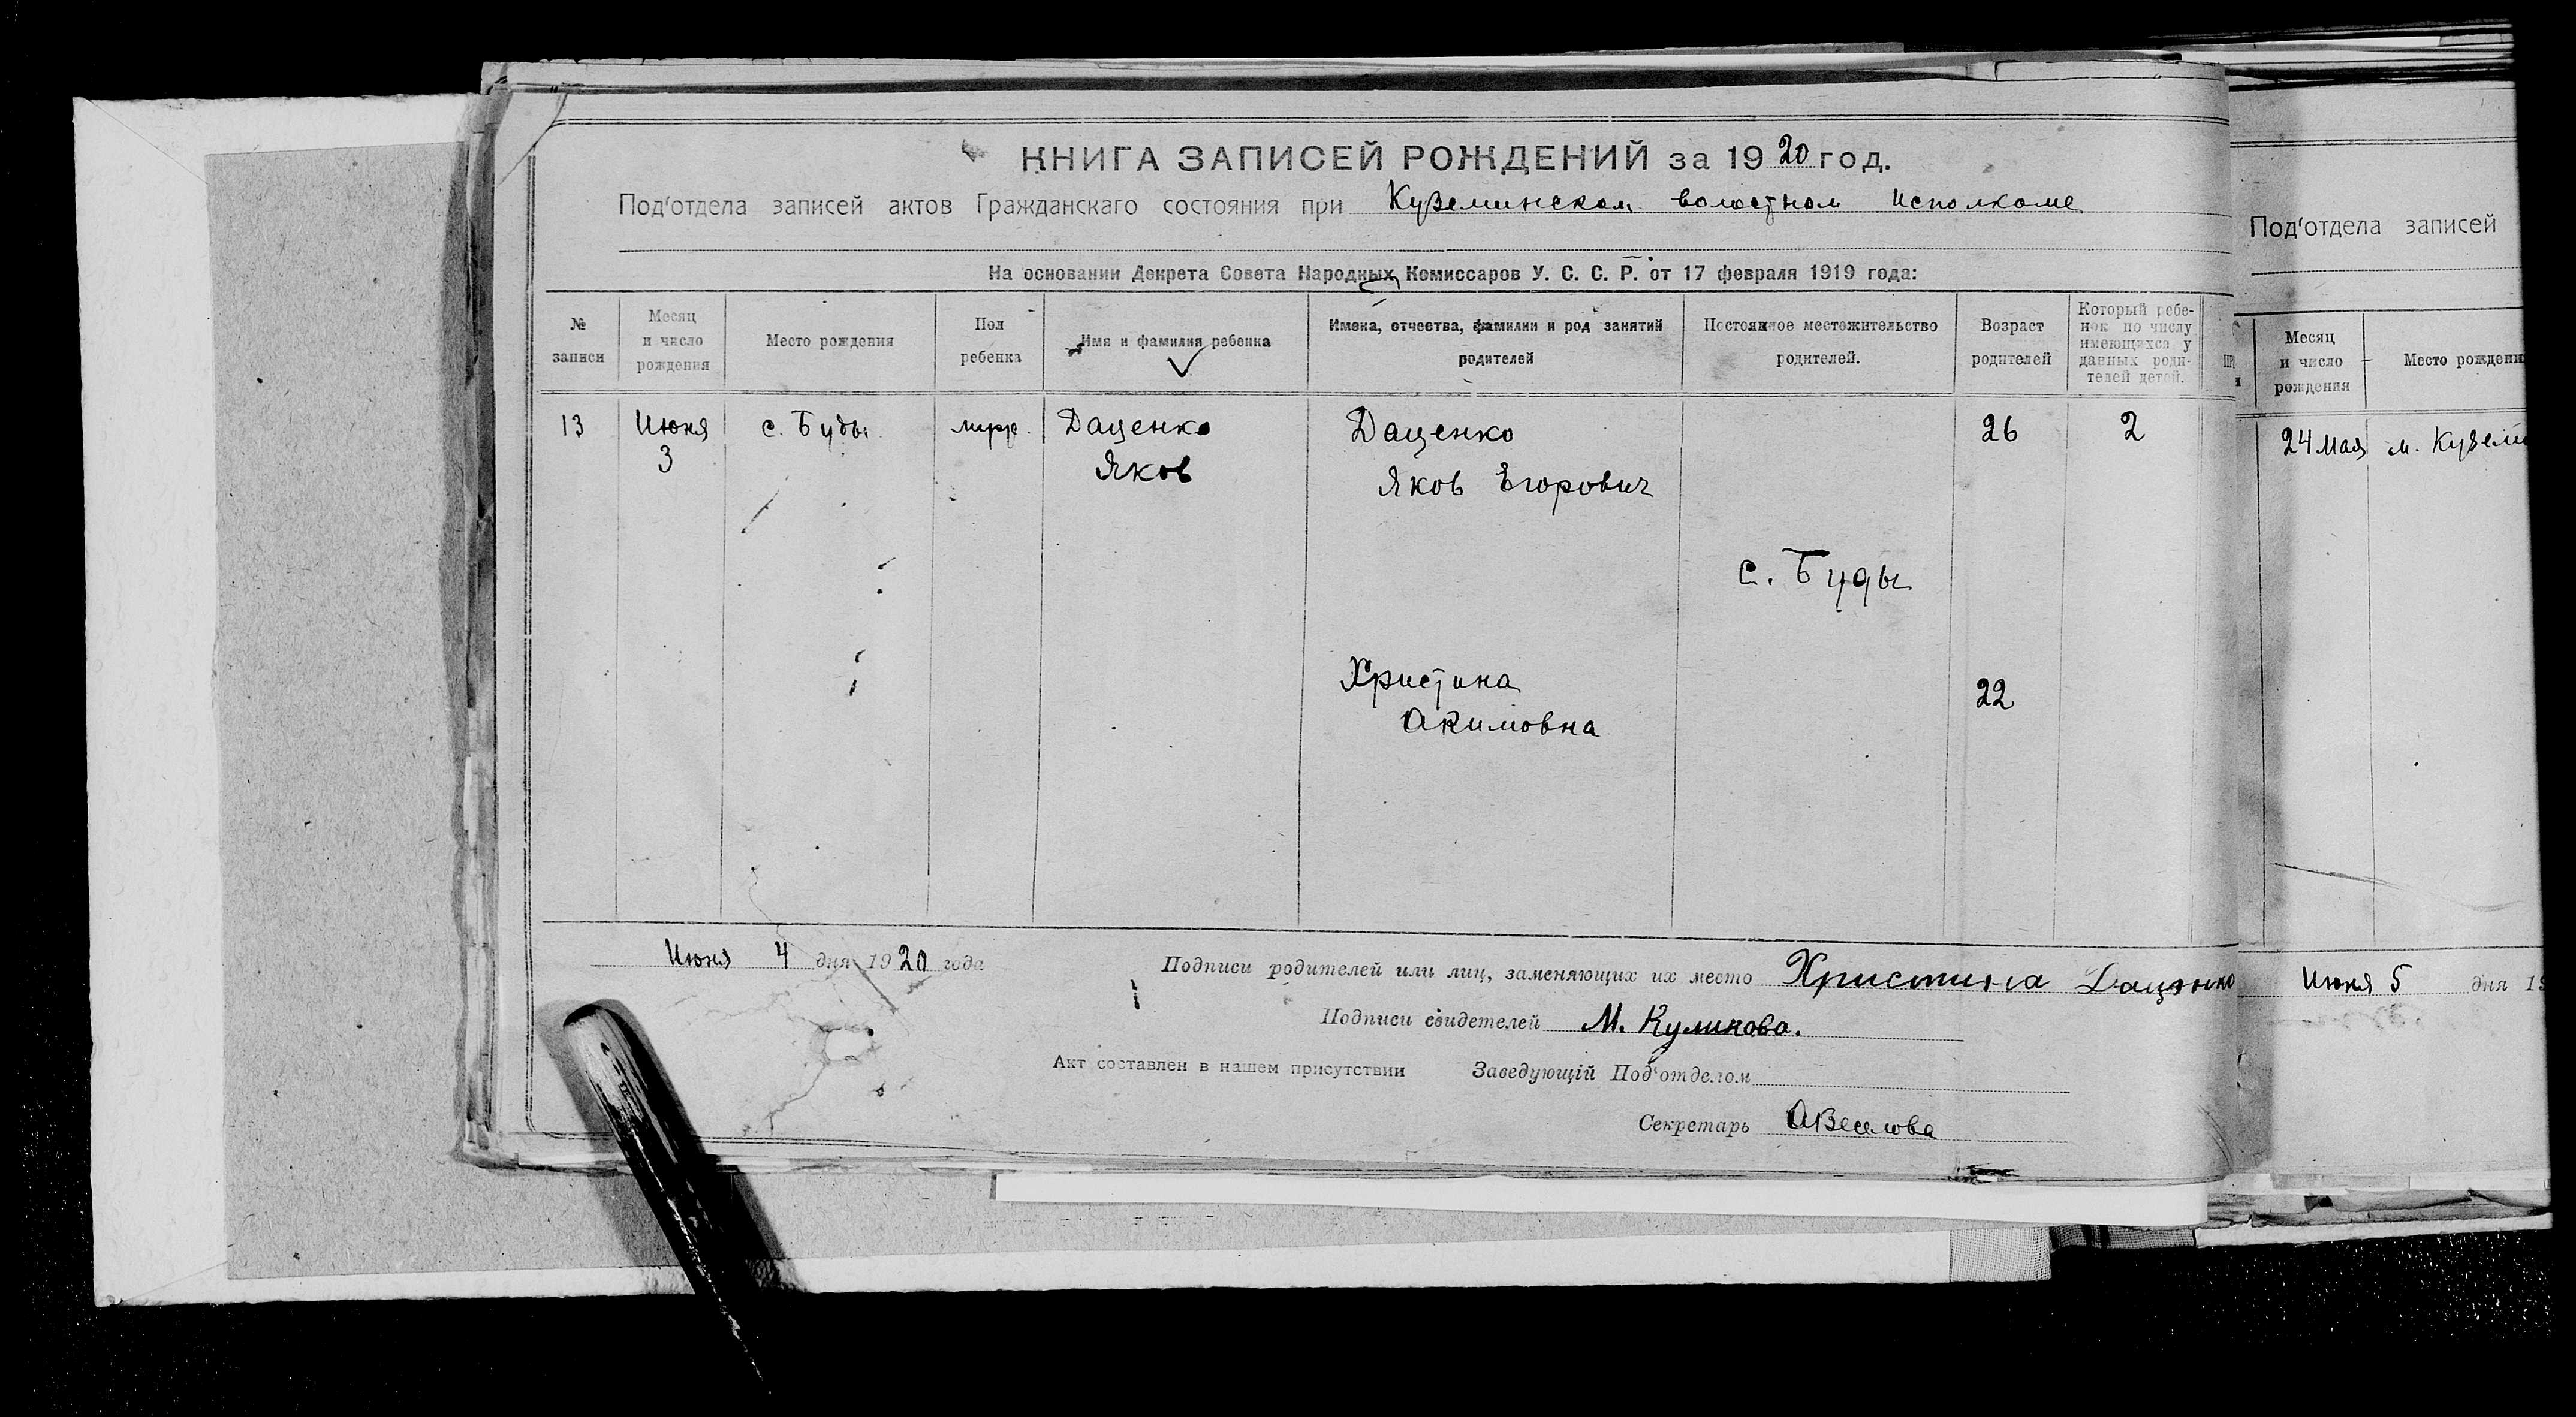 КНИГА ЗАПИСЕЙ РОЖДЕНИЙ за 1920 год.
Под'отдела записей актов Гражданскаго состояния при Куземинском волостном Исполкоме
На основании Декрета Совета Народных Комиссаров У. С. С. Р. от 17 февраля 1919 года:
№ записи
Месяц и число рождения
Место рождения
Пол ребенка
Имя и фамилия ребенка
Имена, отчества, фамилии и род занятий родителей
Постоянное местожительство родителей.
Возраст родителей
Который ребе-
нок по числу
имеющихся у
данных роди-
телей детей.
13 Июня с. Буды Даценко Даценко 26 2
3 Яков Яков Егорович
с. Буды
Христина 22
Акимовна
Июня 4 дня 1920 года
Подписи родителей или лиц, заменяющих их место Христина Даценко
Подписи свидетелей М. Куликова.
Акт составлен в нашем присутствии Заведующій Под'отделом
Секретарь АВеселова
Под'отдела записей
Месяц и число рождения
Место рождени
24 мая м. Кузем
Июня 5 дня 19